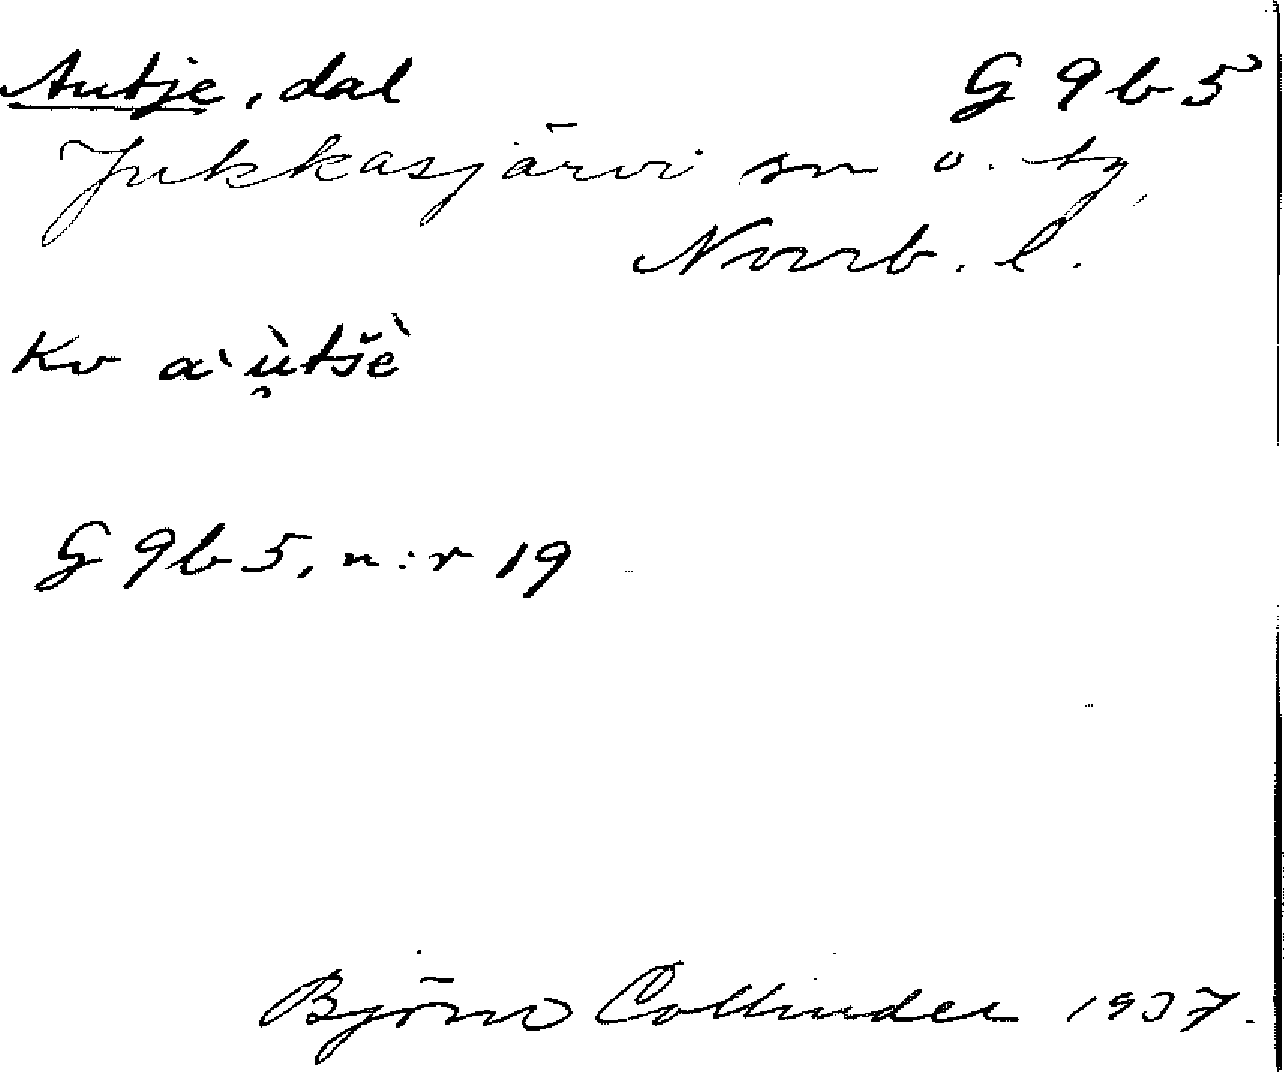 Autje, dal G 9 b 5
Jukkasjärvi sn o. tg,
Norrb. l.
Kv a`ù̯tšè`
G 9 b 5, n:r 19
Björn Collinder 1937.